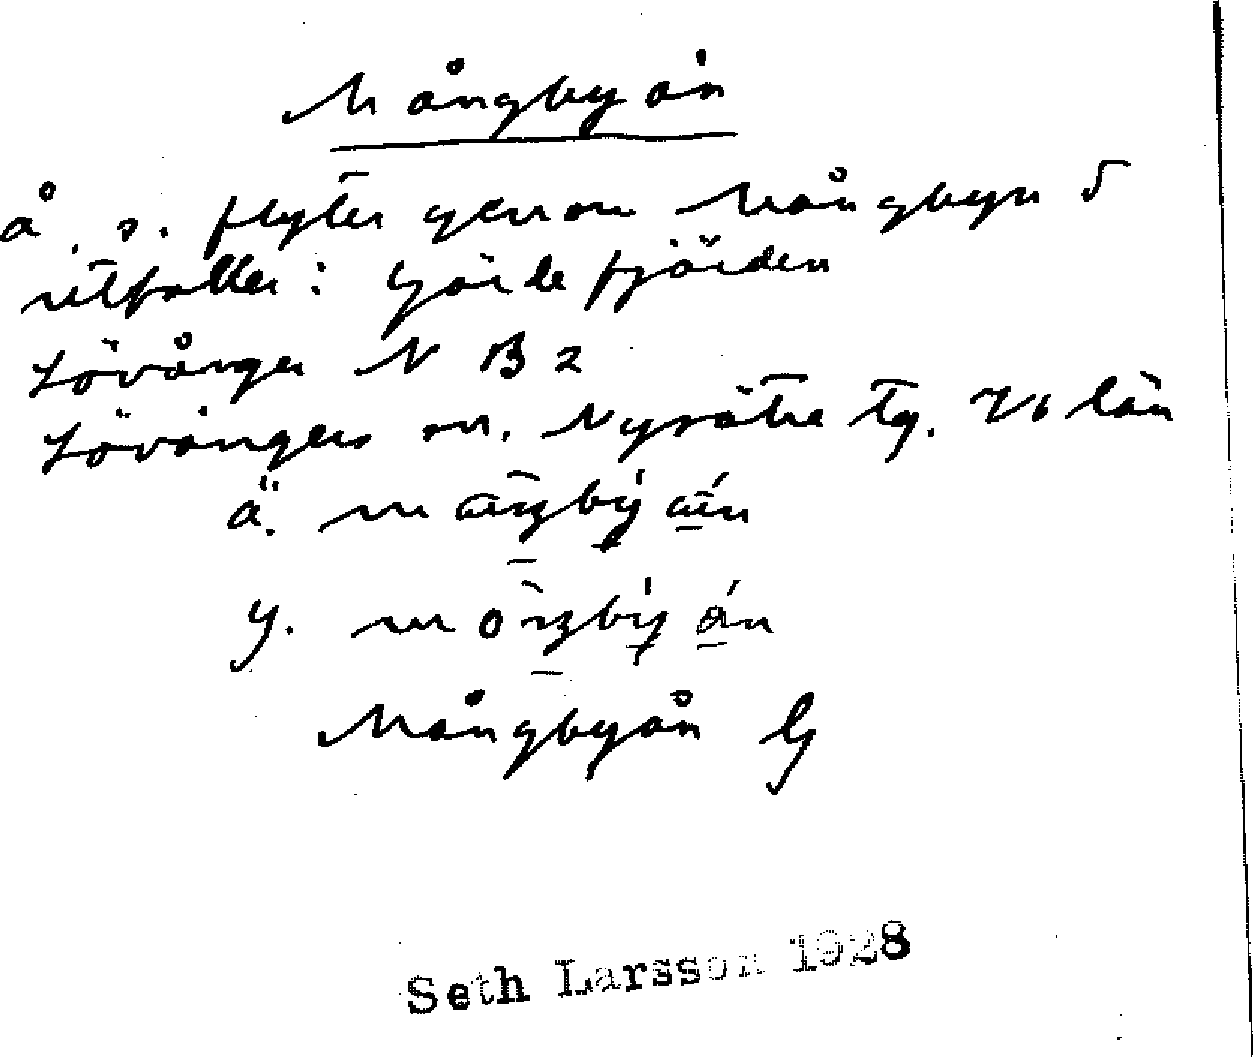 Mångbyån
å, s. flyter genom Mångbyn o
utfaller i Gärdefjärden
Lövånger N B 2
Lövångers sn. Nysätra tg. Vb län
ä.
y.
Mångbyån G
Seth Larsson 1928